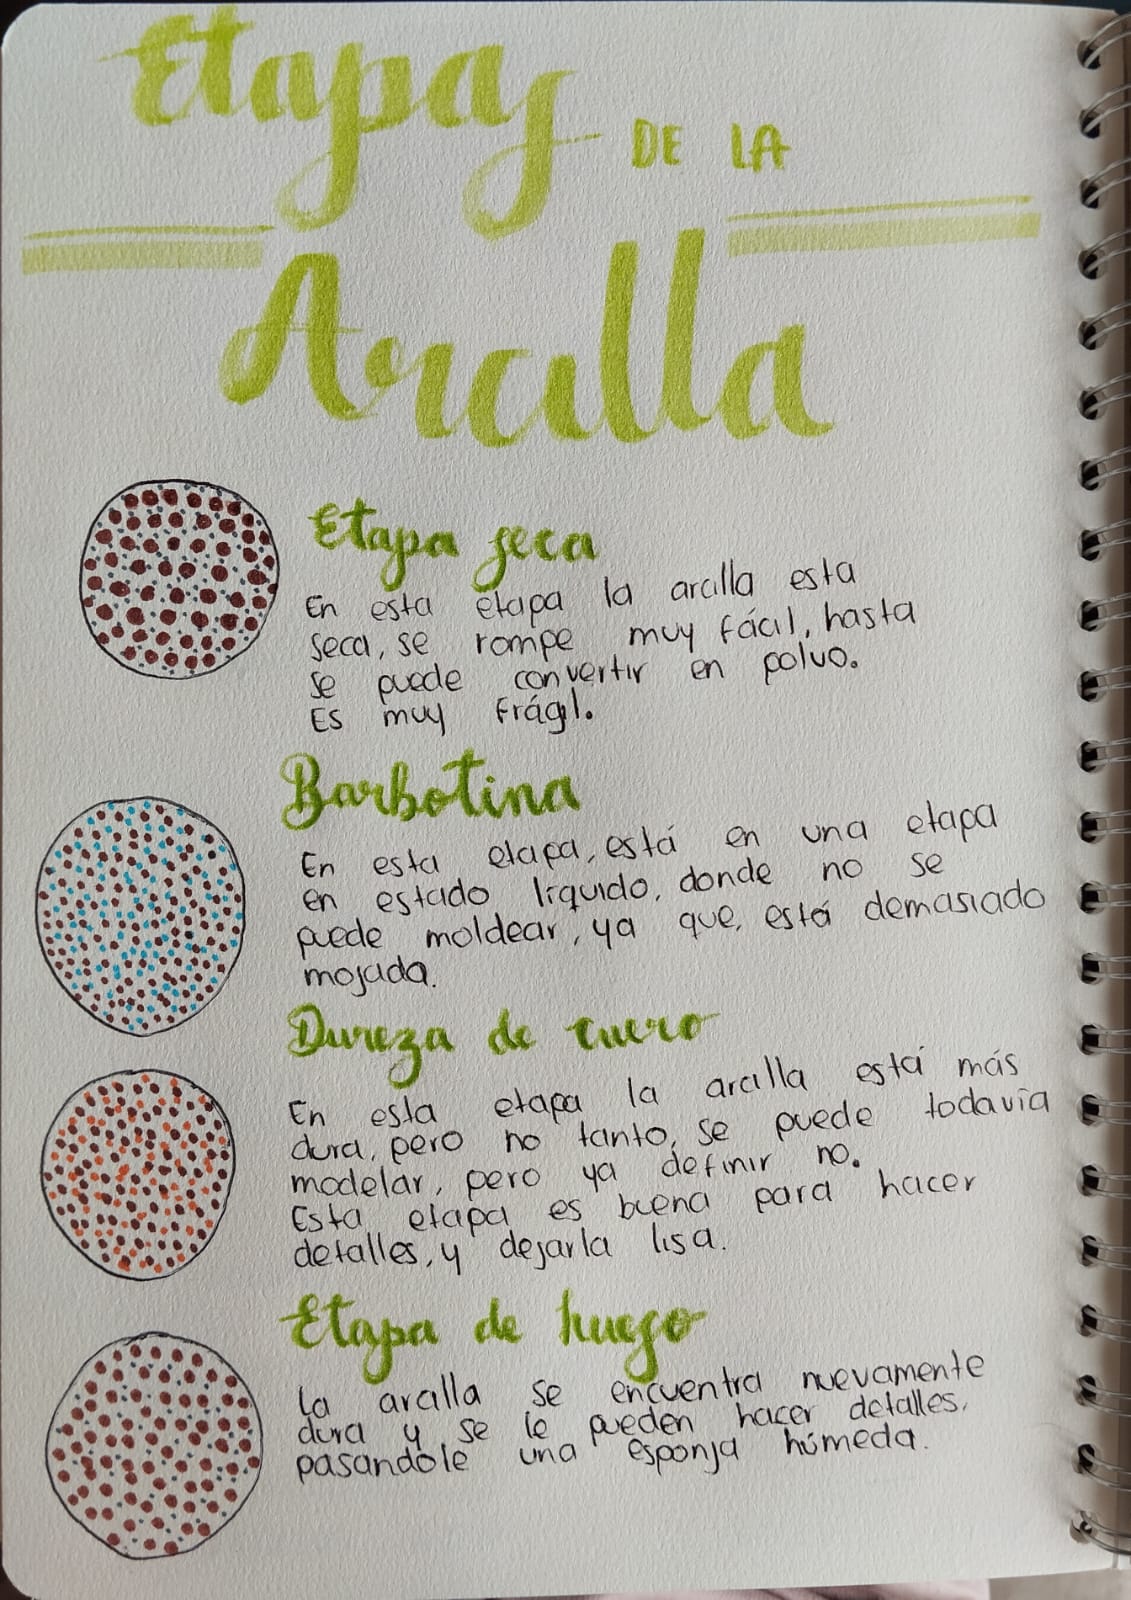 Etapas
DE LA
Arcilla
Etapa seca
En esta etapa la arcilla esta
seca, se rompe muy fácil, hasta
se puede convertir en polvo.
Es muy frágil.
Barbotina
En esta etapa, está en una etapa
en estado líquido, donde no se
puede moldear, ya que, está demasiado
mojada.
Dureza de cuero
En esta etapa la arcilla está más
dura, pero no tanto, se puede todavía
modelar, pero ya definir no.
Esta etapa es buena para hacer
detalles, y dejarla lisa.
Etapa de hueso
La arcilla se encuentra nuevamente
dura y se le pueden hacer detalles,
pasandole una esponja húmeda.